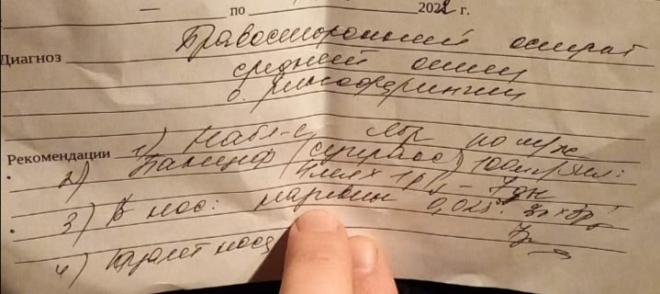 по 2022 г.
Диагноз Правосторонний острый
средний отит
о. ринофарингит
Рекомендации 1) Набл-е ЛОР по м/ж
2) Панцеф (супракс) 100мг/5мл:
1 р/д - 7дн
3) В нос: 0,025%
4) Туалет носа